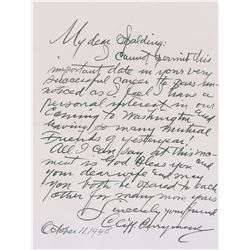 My dear Spalding:
Cannot permit this
important date in your very
successful career to pass un-
noticed as I feel I have a
personal interest in our
coming to Washington and
having so many mutual
Friends of yesteryear.
All I can say at this mo-
ment is God bless you and
your dear wife and may
you both be spared to each
other for many more years
Sincerely your friend
October 11, 1940 Cliff Berryman